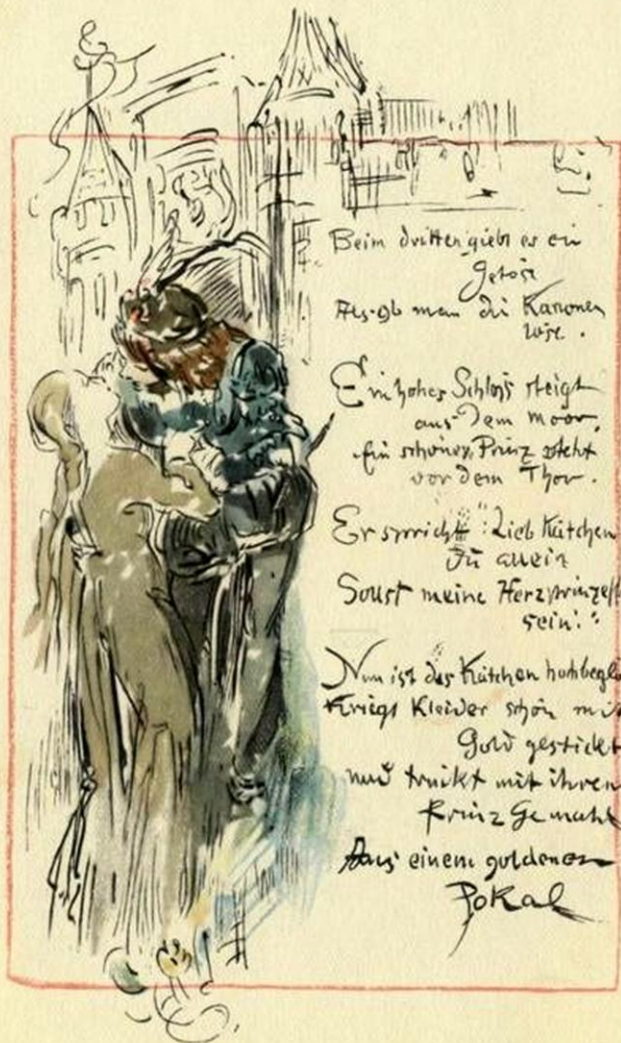 Beim dritten giebt es ein
Getöse
Als ob man die Kanonen
löse.
Ein hohes Schloss steigt
aus dem Moor,
Ein schöner Prinz steht
vor dem Thor.
Er spricht: "Lieb Kätchen
Du allein
Sollst meine Herzprinzess
sein."
Nun ist das Kätchen hochbeglü
Kriegt Kleider schön mit
Gold gestickt
und trinkt mit ihrem
Prinz Gemahl
Aus einem goldenen
Pokal